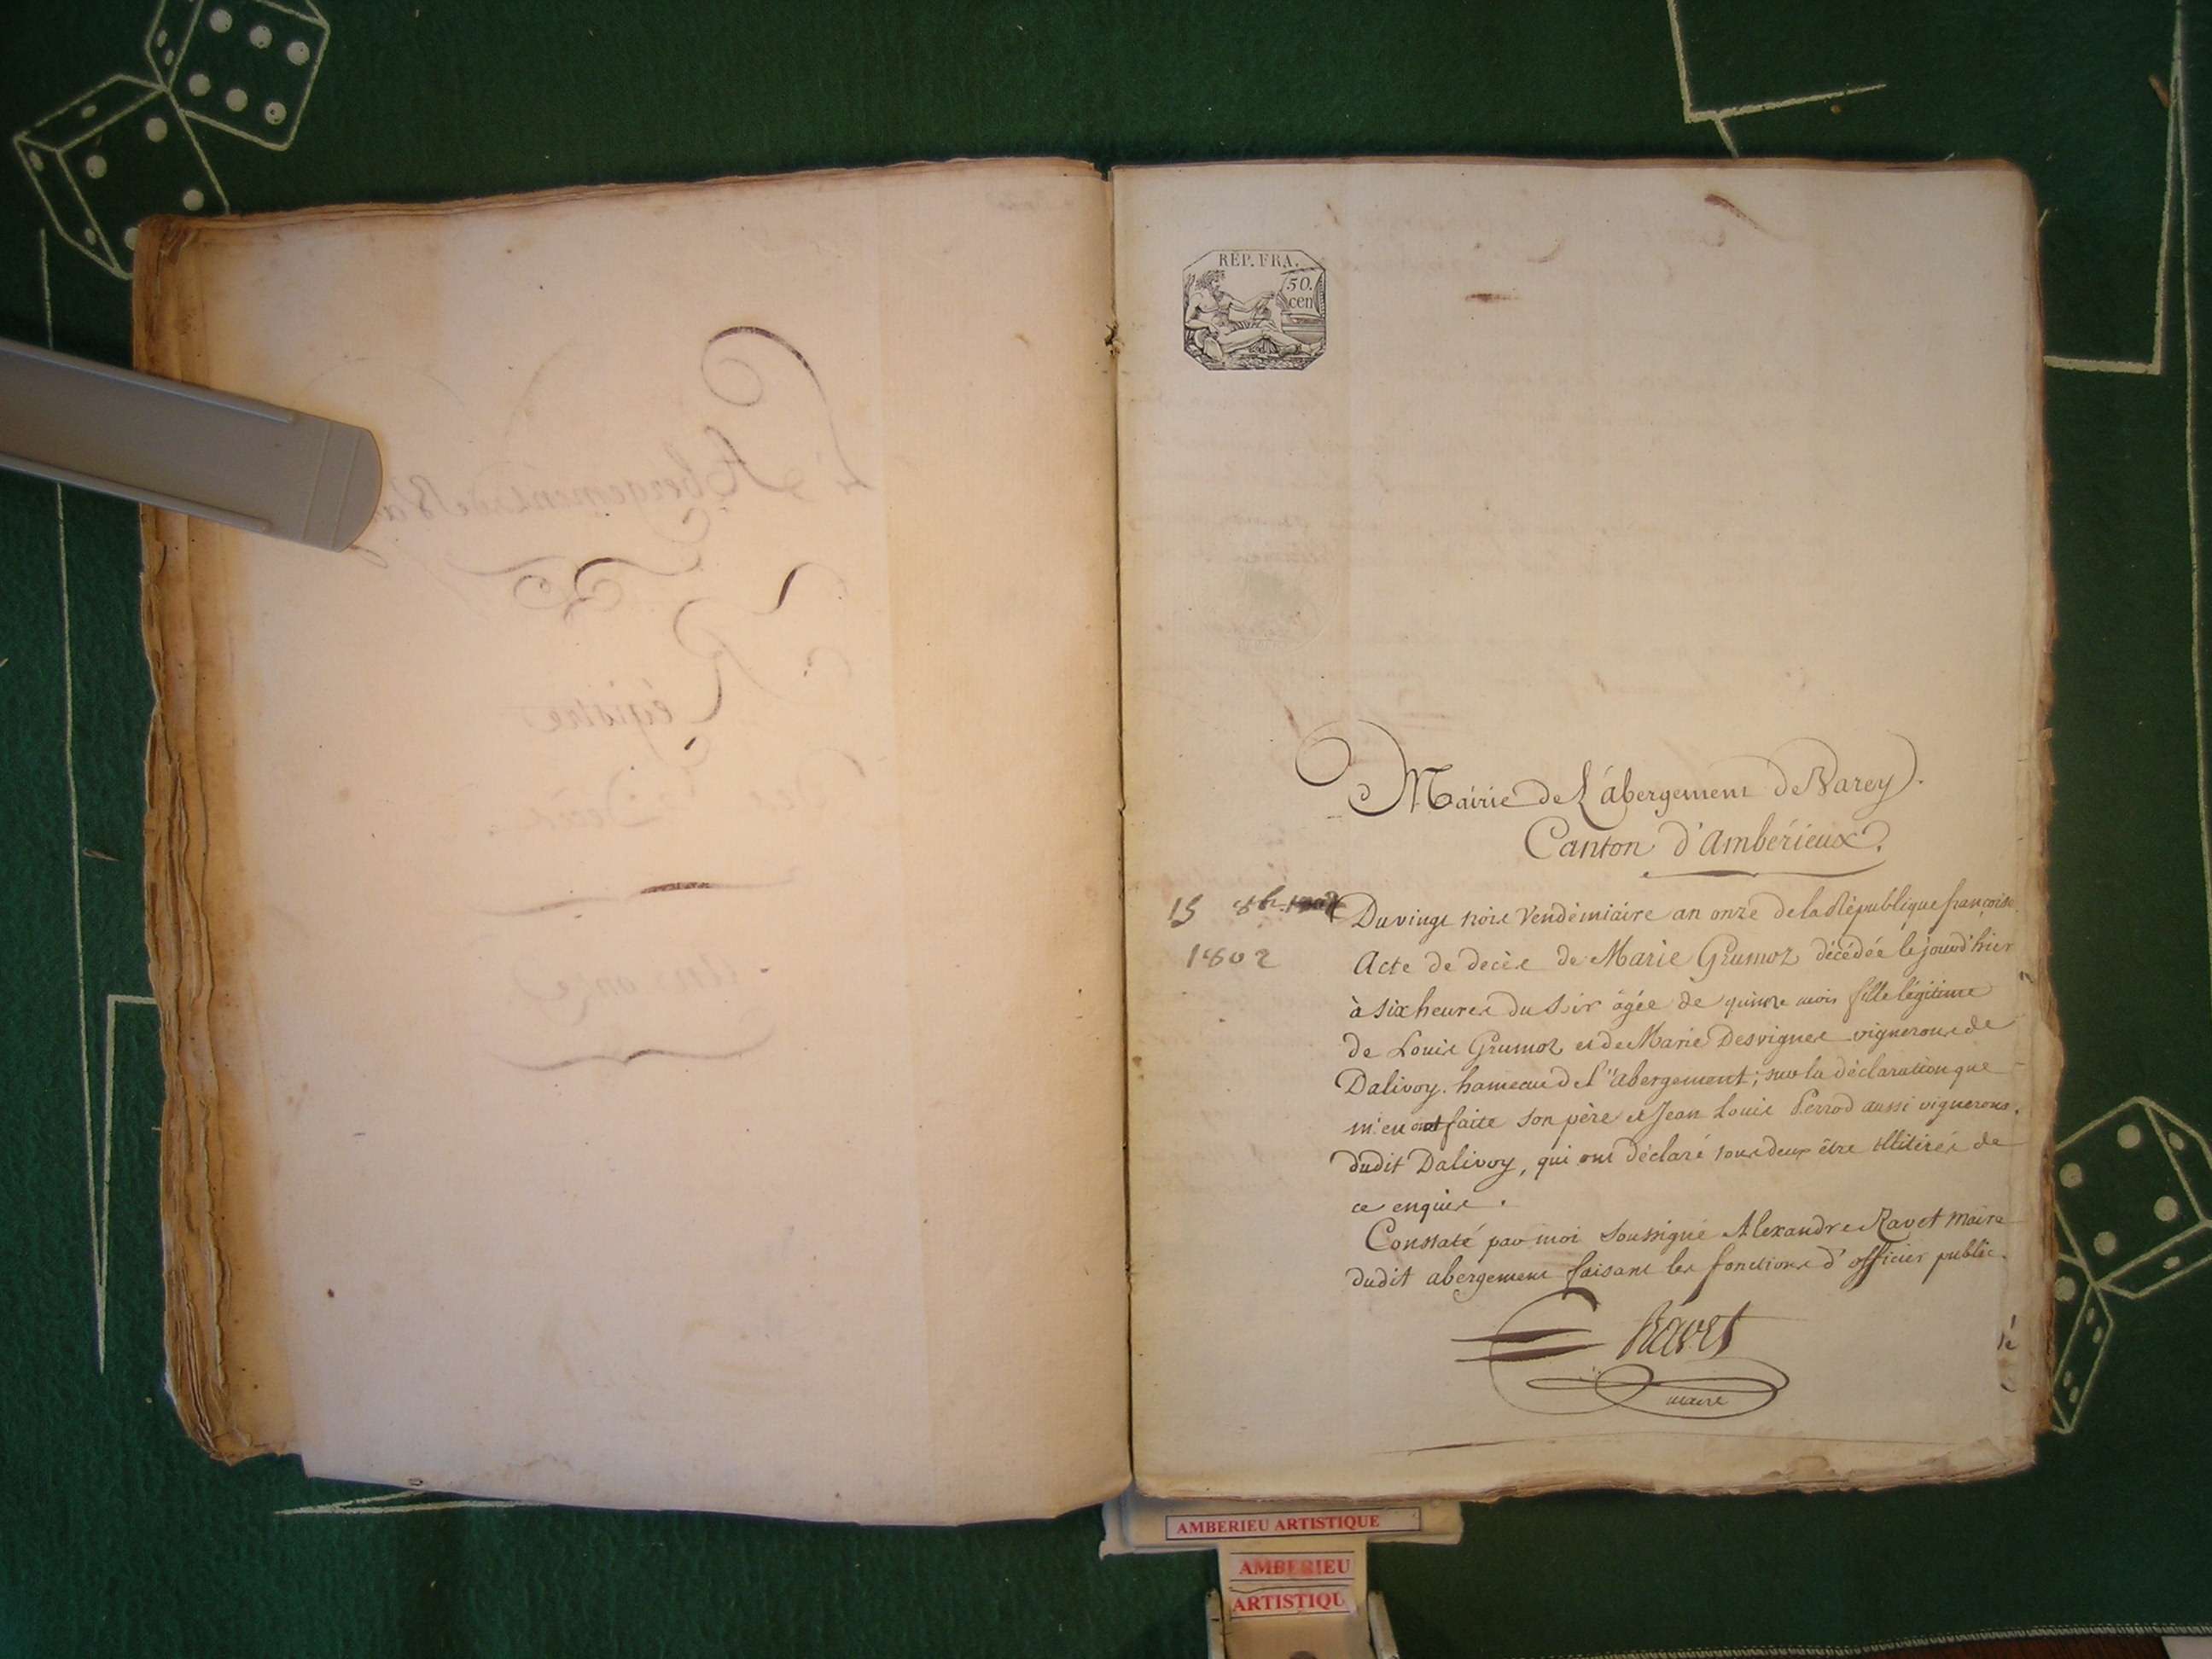 L'Abergement de Va
Régistre
Des Décès
An onze
REP. FRA.
50.
cen
Mairie de L'ábergement de Varey.
Canton d'Ambérieux.
15 8br
1802
Du vingt trois Vendémiaire an onze de la République françoise.
Acte de decès de Marie Grumoz décédée le jourd'hier
à six heures du soir âgée de quinze mois fille légitime
de Louis Grumoz et de Marie Desvignes vignerons de
Dalivoy. hameau de l'abergement; sur la déclaration que
m'en ont faite son père et Jean Louis Perrod aussi vignerons.
dudit Dalivoy, qui ont déclaré tous deux être illitérés de
ce enquis.
Constaté par moi soussigné Alexandre Ravet maire
dudit abergement faisant les fonctions d'officier public.
Ravet
maire
AMBERIEU ARTISTIQUE
AMBERIEU
ARTISTIQU